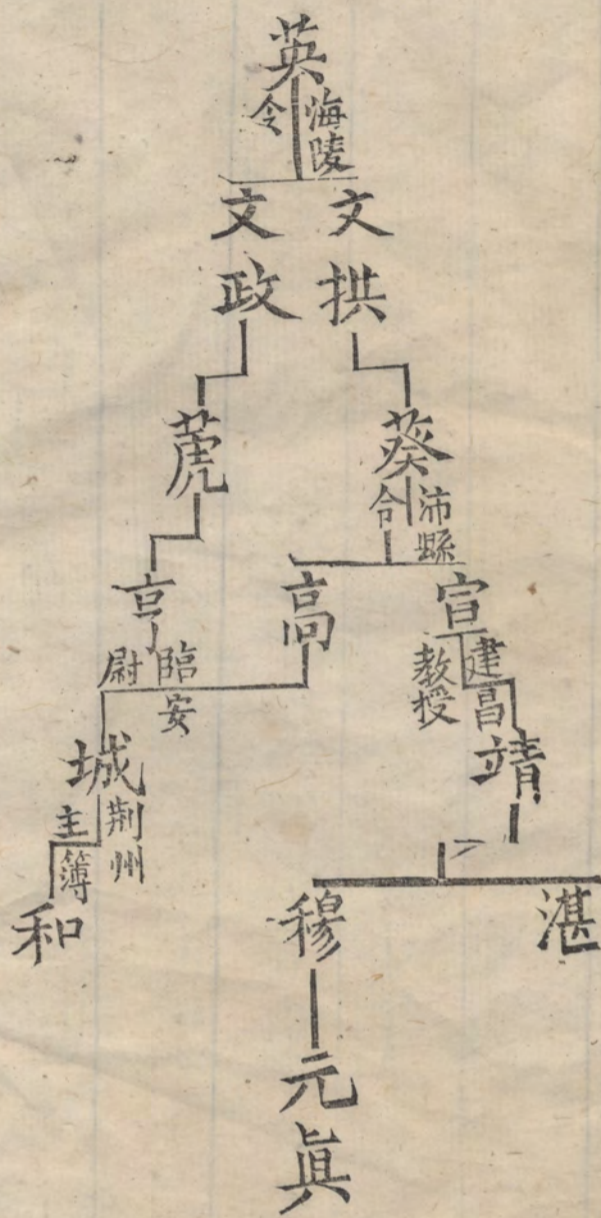 英
海陵令
文拱
文政
葵
沛縣令
萀
宣
建昌教授
高
亨
臨安尉
靖
城
荆州主簿
湛
穆
和
元眞